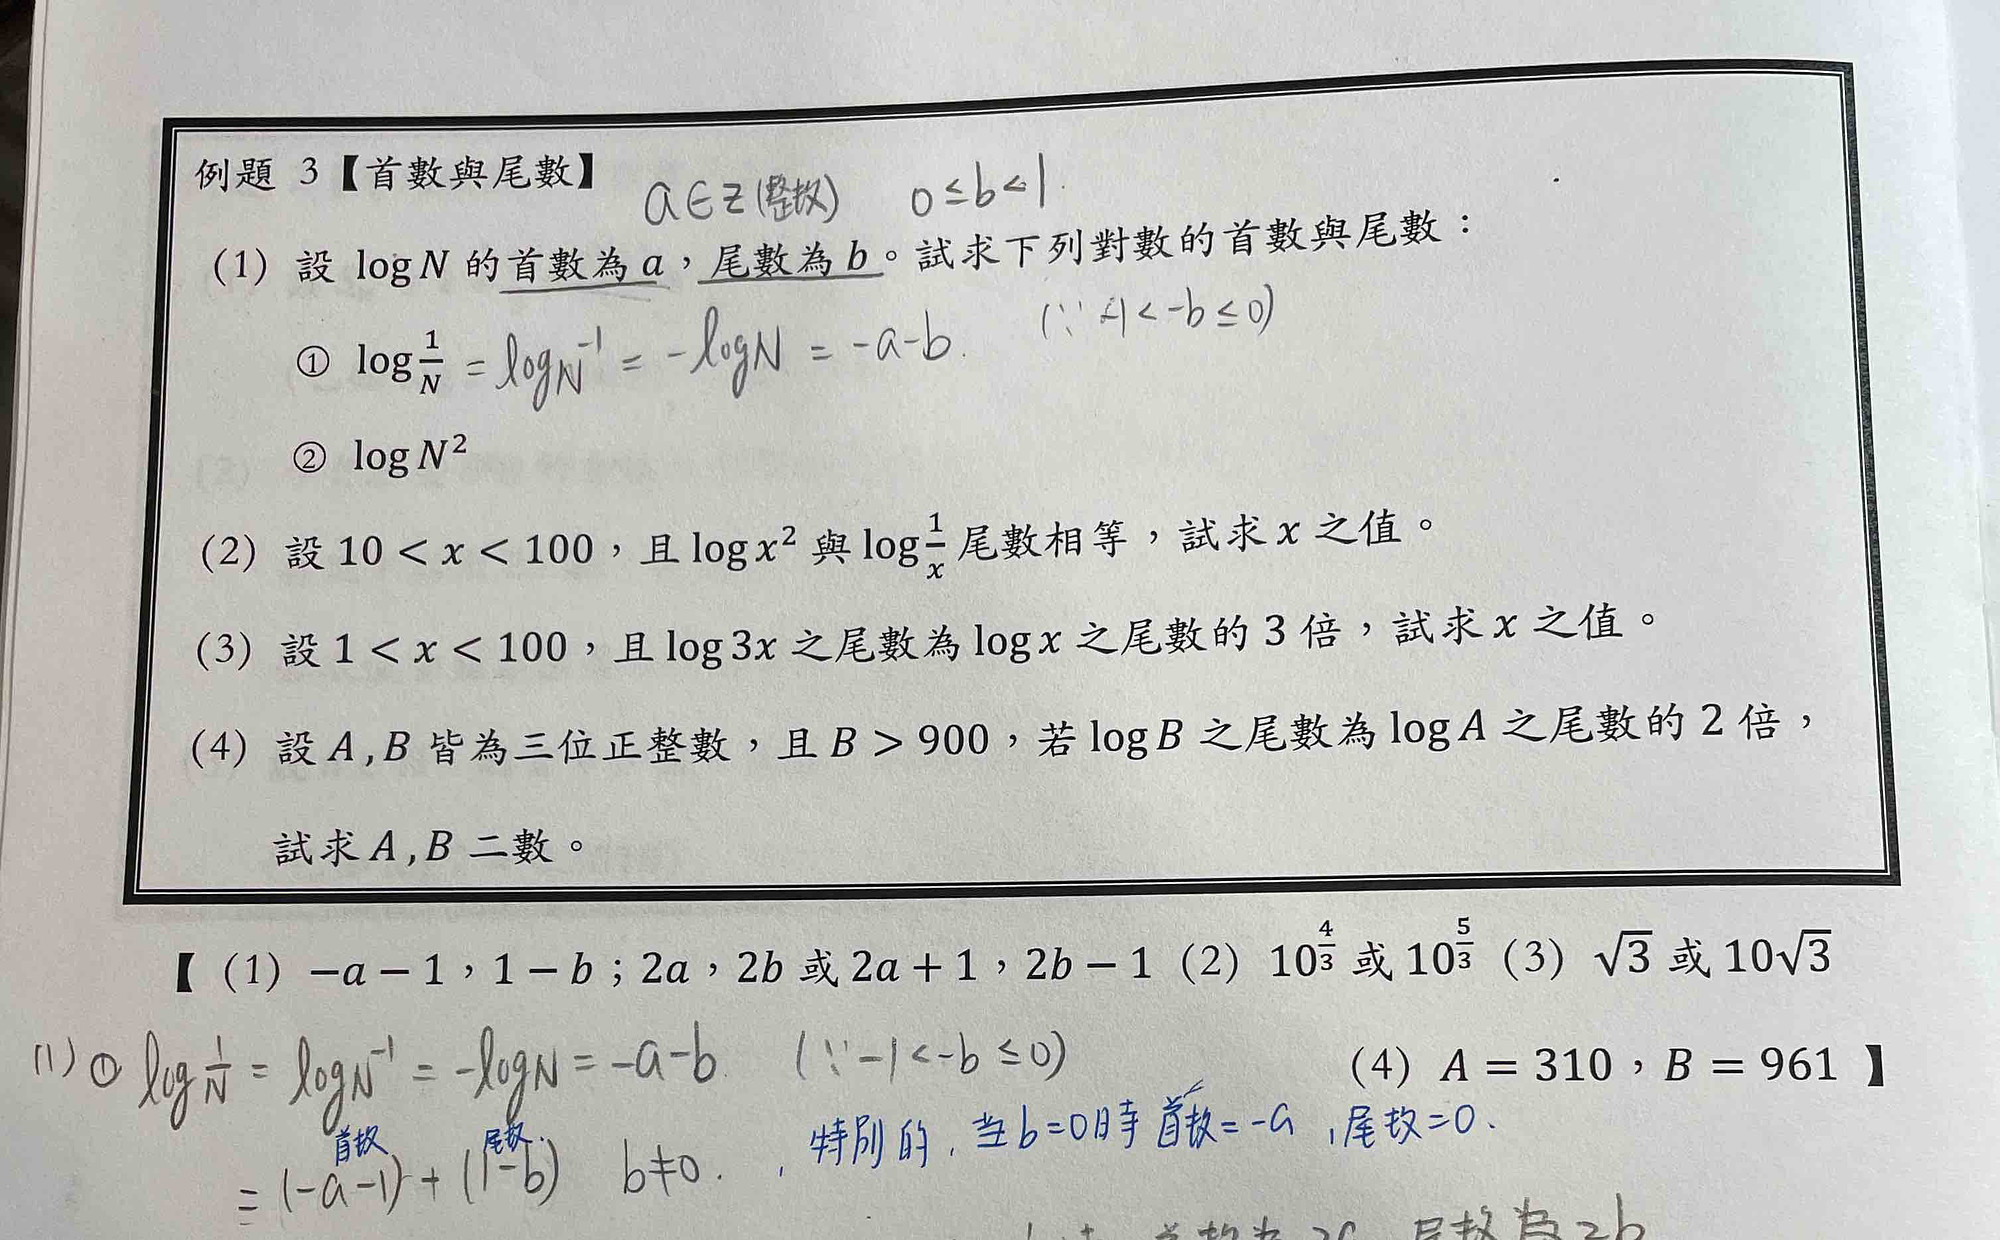 例題 3【首數與尾數】 a∈Z(整数) 0≤b<1
(1) 設 log N 的首數為 a，尾數為 b。試求下列對數的首數與尾數：
① log 1/N = log N⁻¹ = -log N = -a-b. (∵ -1<-b≤0)
② log N²
(2) 設 10 < x < 100，且 log x² 與 log 1/x 尾數相等，試求 x 之值。
(3) 設 1 < x < 100，且 log 3x 之尾數為 log x 之尾數的 3 倍，試求 x 之值。
(4) 設 A , B 皆為三位正整數，且 B > 900，若 log B 之尾數為 log A 之尾數的 2 倍，
試求 A , B 二數。
【(1) −a − 1，1 − b；2a，2b 或 2a + 1，2b − 1 (2) 10^(4/3) 或 10^(5/3) (3) √3 或 10√3
(4) A = 310，B = 961 】
(1) ① log 1/N = log N⁻¹ = -log N = -a-b. (∵ -1<-b≤0)
首数 尾数.
= (-a-1) + (1-b) b≠0. , 特別的, 当 b=0時 首数=-a , 尾数=0.
首数為2a 尾数為2b